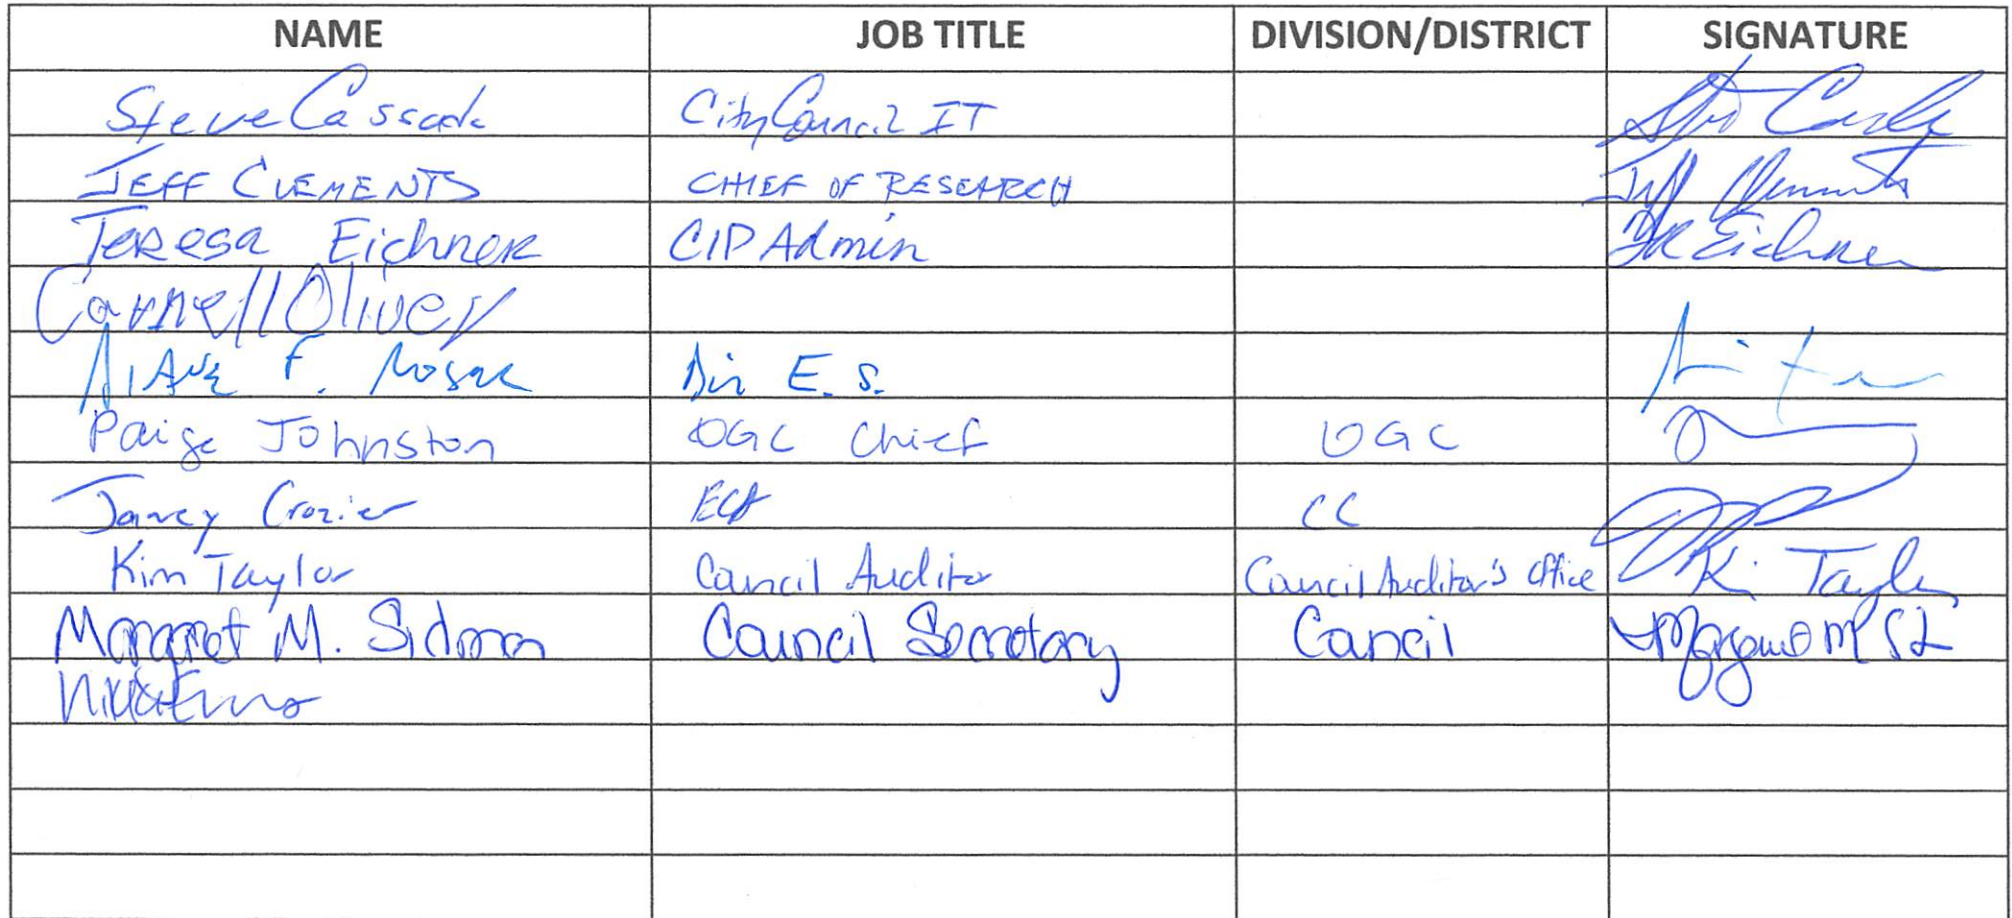 NAME JOB TITLE DIVISION/DISTRICT SIGNATURE
Steve Cassada City Council IT
JEFF CLEMENTS CHIEF OF RESEARCH Jeff Clements
Teresa Eichner CIP Admin Eichner
Carnell Oliver
F. Dir E. S.
Paige Johnston OGC Chief OGC
Janey Crozier ECA CC
Kim Taylor Council Auditor Council Auditor's Office Kim Taylor
Margaret M. Sidman Council Secretary Council Margaret M
Nikki